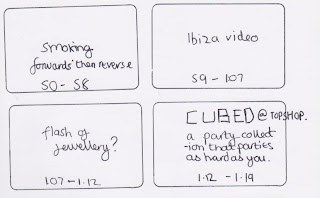 smoking
forwards then reverse
50 - 58
Ibiza video
59 - 107
flash of
jewellery?
107 - 1.12
CUBED @ TOPSHOP.
a party collect
-ion that parties
as hard as you.
1.12 - 1.19